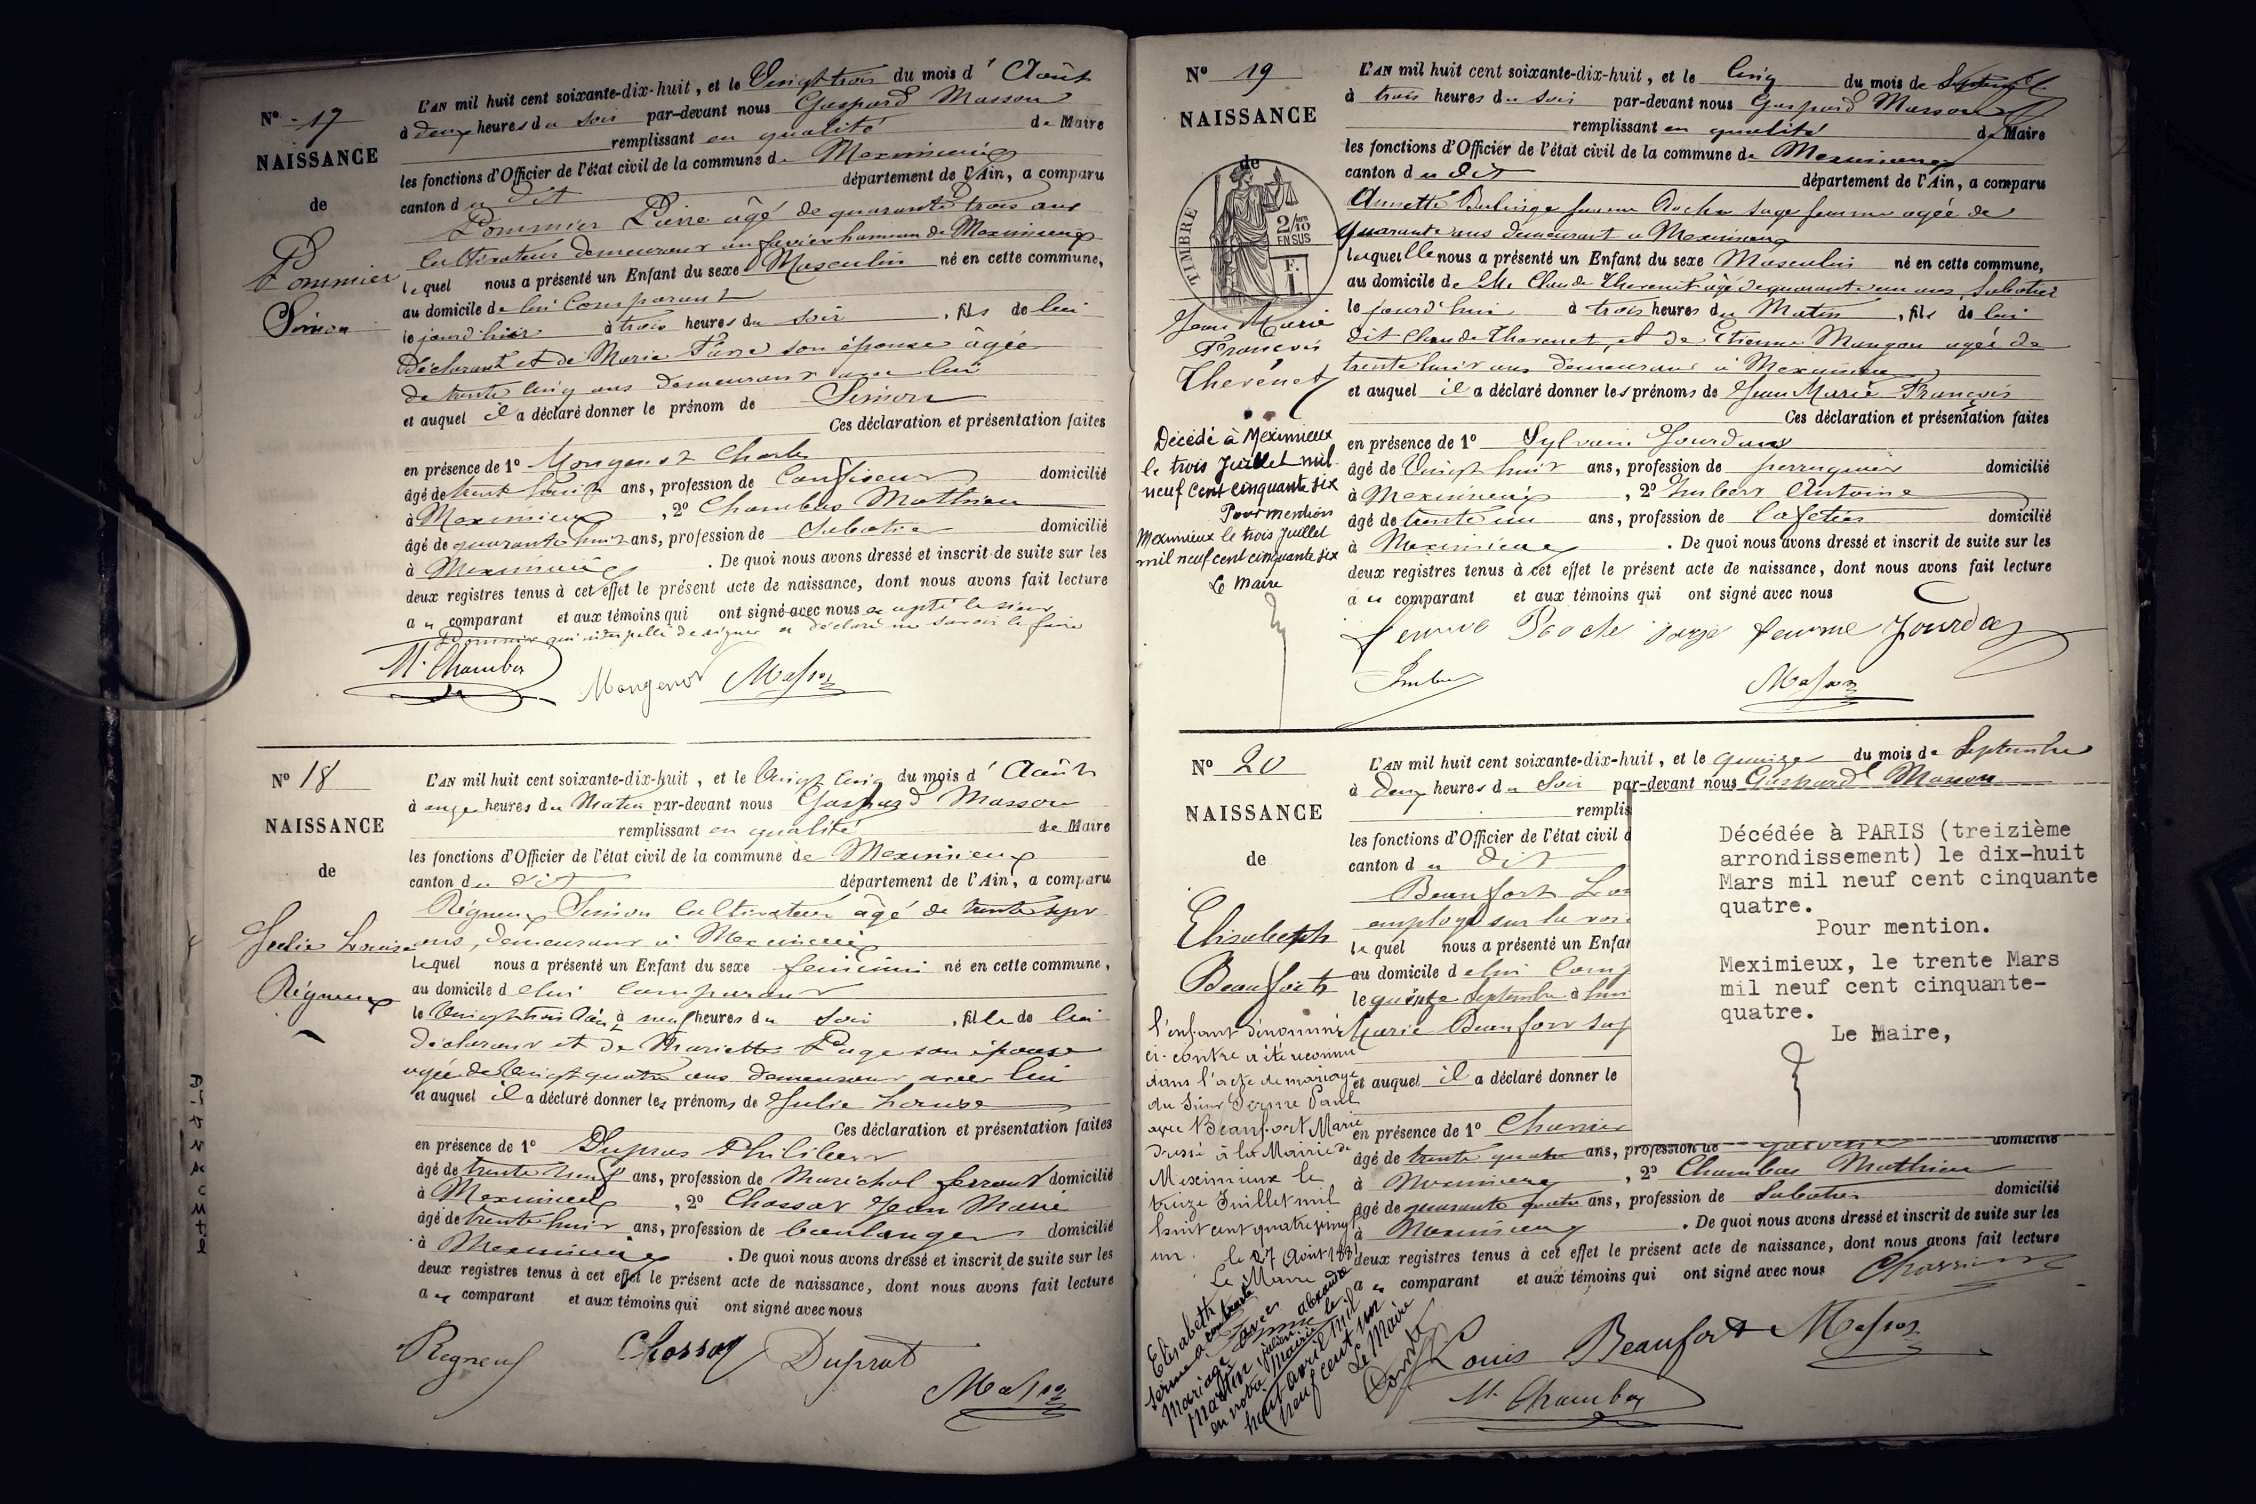 N° 17
NAISSANCE
de
Pommier
Simon
L'AN mil huit cent soixante-dix-huit, et le Vingt trois du mois d' Août
à deux heures du soir par-devant nous Gaspard Masson
remplissant en qualité de Maire
les fonctions d'Officier de l'état civil de la commune de Meximieux
canton du dit département de l'Ain, a comparu
Pommier Pierre âgé de quarante trois ans
Cultivateur demeurant au hameau de Meximieux
lequel nous a présenté un Enfant du sexe Masculin né en cette commune,
au domicile de lui Comparant
le jourd'hier à trois heures du soir, fils de lui
Déclarant et de Marie Favre son épouse âgée
de trente cinq ans demeurant avec lui
et auquel il a déclaré donner le prénom de Simon
Ces déclaration et présentation faites
en présence de 1° Mongenot Charles
âgé de trente huit ans, profession de Confiseur domicilié
à Meximieux, 2° Chambas Matthieu
âgé de quarante huit ans, profession de Sabotier domicilié
à Meximieux. De quoi nous avons dressé et inscrit de suite sur les
deux registres tenus à cet effet le présent acte de naissance, dont nous avons fait lecture
au comparant et aux témoins qui ont signé avec nous excepté le sieur
Pommier qui interpellé de signer a déclaré ne savoir le faire
M. Chambas Mongenot Masson
N° 18
NAISSANCE
de
Julie Louise
Régneux
L'AN mil huit cent soixante-dix-huit, et le Vingt cinq du mois d' Août
à onze heures du Matin par-devant nous Gaspard Masson
remplissant en qualité de Maire
les fonctions d'Officier de l'état civil de la commune de Meximieux
canton du dit département de l'Ain, a comparu
Régneux Simon Cultivateur âgé de trente sept
ans, demeurant à Meximieux
lequel nous a présenté un Enfant du sexe féminin né en cette commune,
au domicile de lui Comparant
le Vingt trois Août à neuf heures du soir, fille de lui
déclarant et de Mariette Page son épouse
agée de Vingt quatre ans demeurant avec lui
et auquel il a déclaré donner les prénoms de Julie Louise
Ces déclaration et présentation faites
en présence de 1° Dupras Philibert
âgé de trente neuf ans, profession de Maréchal ferrant domicilié
à Meximieux, 2° Chossat Jean Marie
âgé de trente huit ans, profession de boulanger domicilié
à Meximieux. De quoi nous avons dressé et inscrit de suite sur les
deux registres tenus à cet effet le présent acte de naissance, dont nous avons fait lecture
au comparant et aux témoins qui ont signé avec nous
Regneux Chossat Duprat
Masson
N° 19
NAISSANCE
de
TIMBRE
2/10 EN SUS
F.
1
Jean Marie
François
Thévenet
Décédé à Meximieux
le trois Juillet mil
neuf cent cinquante six
Pour mention
Meximieux le trois Juillet
mil neuf cent cinquante six
Le Maire
L'AN mil huit cent soixante-dix-huit, et le Cinq du mois de Septembre
à trois heures du soir par-devant nous Gaspard Masson
remplissant en qualité de Maire
les fonctions d'Officier de l'état civil de la commune de Meximieux
canton du dit département de l'Ain, a comparu
Annette femme Roche sage femme agée de
quarante ans demeurant à Meximieux
laquelle nous a présenté un Enfant du sexe Masculin né en cette commune,
au domicile de Claude Thevenet âgé de quarante un ans, Sabotier
le jourd'hui à trois heures du Matin, fils de lui
dit Claude Thevenet, et de Etienne Mangon agée de
trente huit ans demeurant à Meximieux
et auquel il a déclaré donner les prénoms de Jean Marie François
Ces déclaration et présentation faites
en présence de 1° Sylvain Jourdan
âgé de Vingt huit ans, profession de perruquier domicilié
à Meximieux, 2° Imbert Antoine
âgé de trente un ans, profession de Cafetier domicilié
à Meximieux. De quoi nous avons dressé et inscrit de suite sur les
deux registres tenus à cet effet le présent acte de naissance, dont nous avons fait lecture
au comparant et aux témoins qui ont signé avec nous
femme Roche sage femme Jourdan
Imbert Masson
N° 20
NAISSANCE
de
Elisabeth
Beaufort
l'enfant dénommé
ci-contre a été reconnu
dans l'acte de mariage
du Sieur Serme Paul
avec Beaufort Marie
dressé à la Mairie de
Meximieux le
treize Juillet mil
huit cent quatre vingt
un. le 27 Août 1881
Le Maire
Elisabeth
Serme a contracté
mariage avec
Martin Julien Alexandre
en notre mairie le
huit avril mil
neuf cent un
Le Maire
L'AN mil huit cent soixante-dix-huit, et le quinze du mois de Septembre
à Deux heures du Soir par-devant nous Gaspard Masson
remplis
les fonctions d'Officier de l'état civil d
canton du dit
Beaufort Lou
employé sur la voie
lequel nous a présenté un Enfan
au domicile de lui Comp
le quinze Septembre à huit
Marie Beaufort sa
et auquel il a déclaré donner le
en présence de 1° Charrier
âgé de trente quatre ans, profession de domicilié
à Meximieux, 2° Chambas Mathieu
âgé de quarante quatre ans, profession de Sabotier domicilié
à Meximieux. De quoi nous avons dressé et inscrit de suite sur les
deux registres tenus à cet effet le présent acte de naissance, dont nous avons fait lecture
au comparant et aux témoins qui ont signé avec nous Charrier
Louis Beaufort Masson
M. Chambas
Décédée à PARIS (treizième
arrondissement) le dix-huit
Mars mil neuf cent cinquante
quatre.
Pour mention.
Meximieux, le trente Mars
mil neuf cent cinquante-
quatre.
Le Maire,